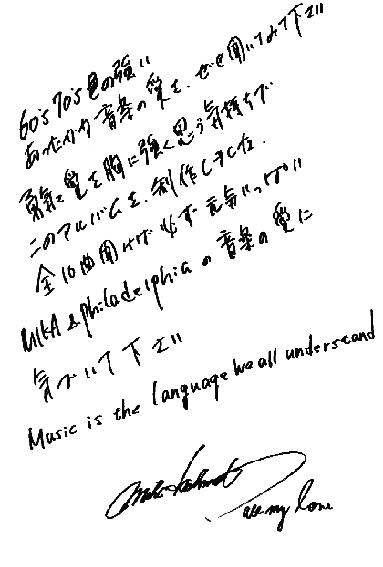 60's 70's 色の強い
あったかな音楽の愛を、ぜひ聞いてみて下さい
勇気と愛を胸に強く思う気持ちで
このアルバムを、制作しました。
全10曲聞けば必ず元気いっぱい
UKA & Philadelphia の音楽の愛に
気づいて下さい
Music is the language we all understand
all my love